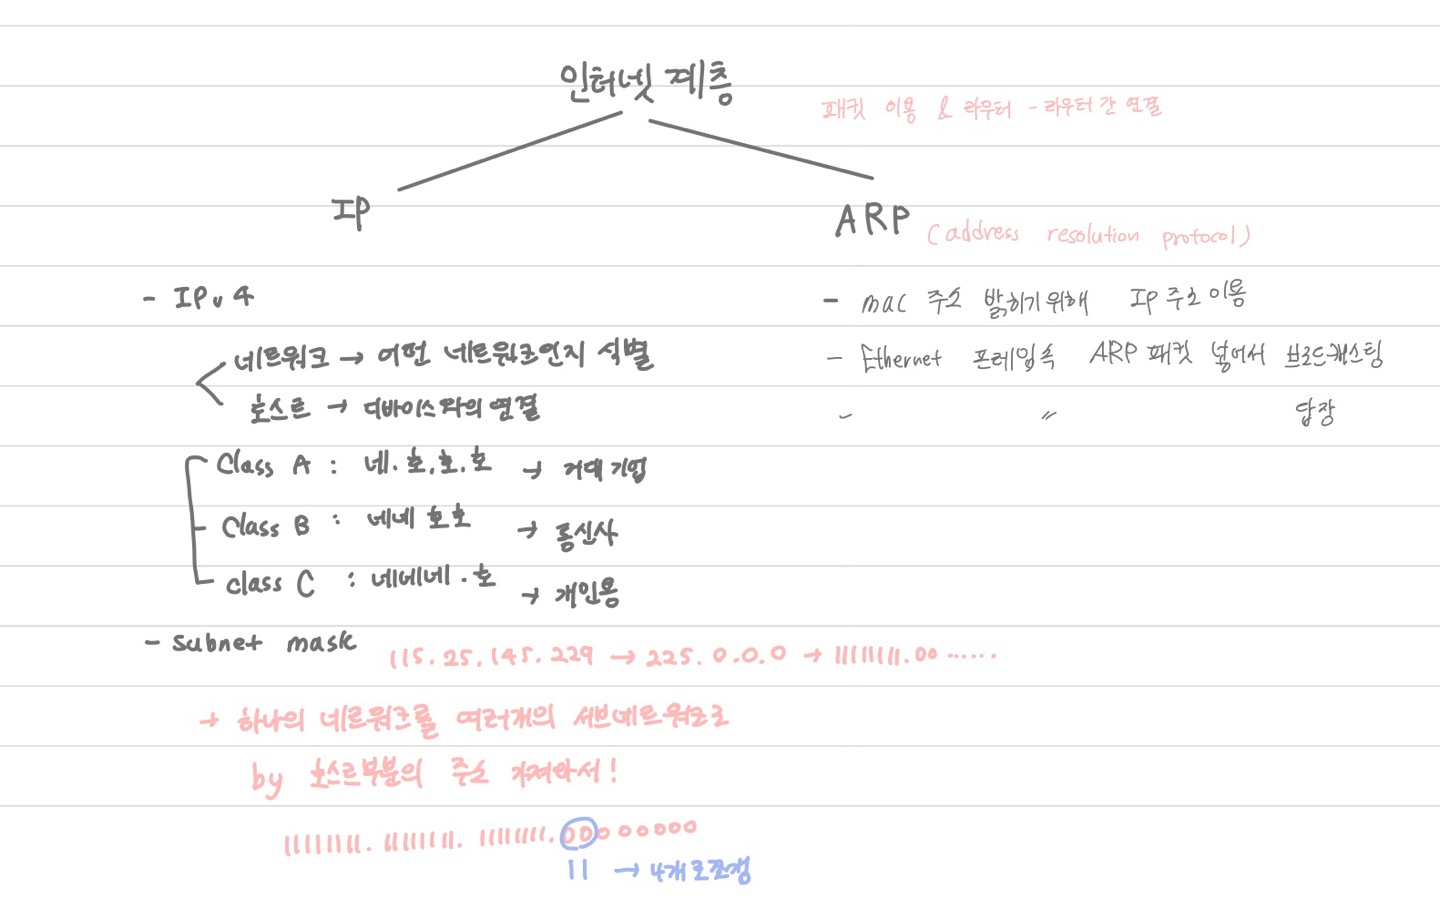 인터넷 계층
패킷 이용 & 라우터 - 라우터 간 연결
IP
- IPv4
네트워크 → 어떤 네트워크인지 식별
호스트 → 디바이스와의 연결
Class A : 네.호.호.호 → 거대 기업
Class B : 네네 호호 → 통신사
class C : 네네네.호 → 개인용
- subnet mask 115.25.145.229 → 225.0.0.0 → 11111111.00......
→ 하나의 네트워크를 여러개의 서브네트워크로
by 호스트부분의 주소 가져와서!
11111111.11111111.11111111.00000000
11 → 4개로 쪼갬
ARP (address resolution protocol)
- mac 주소 밝히기 위해 IP 주소 이용
- Ethernet 프레임속 ARP 패킷 넣어서 브로드캐스팅
- 〃 답장